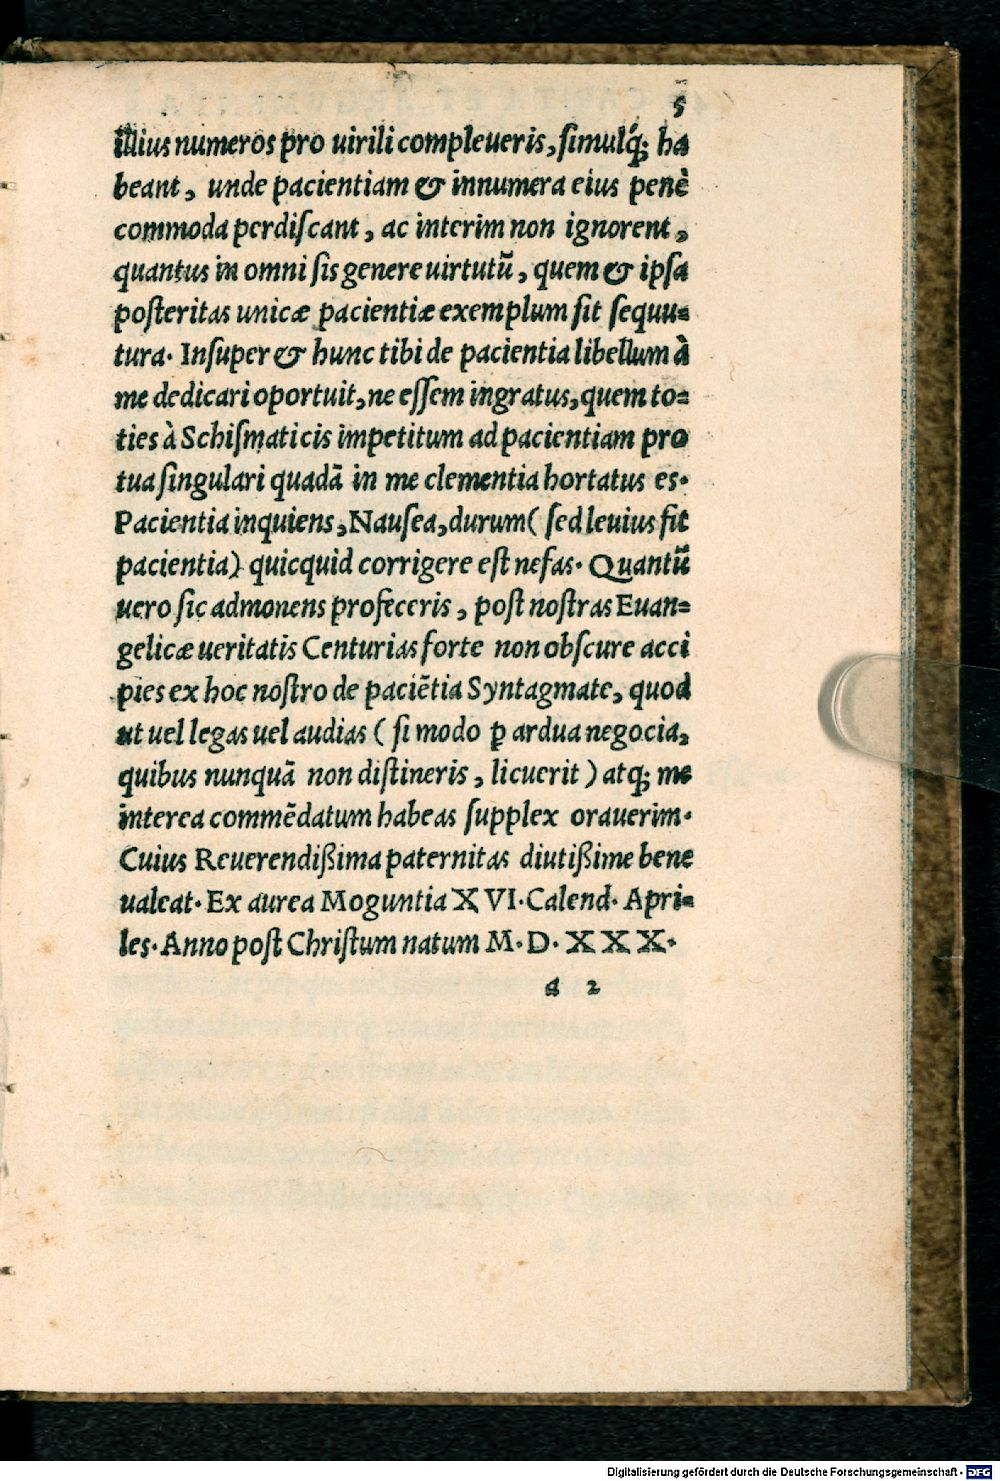 5
illius numeros pro uirili compleueris, ſimulq́; ha
beant, unde pacientiam & innumera eius penè
commoda perdiſcant, ac interim non ignorent,
quantus in omni ſis genere uirtutū, quem & ipſa
poſteritas unicæ pacientiæ exemplum ſit ſequu⸗
tura. Inſuper & hunc tibi de pacientia libellum à
me dedicari oportuit, ne eſſem ingratus, quem to⸗
ties à Schiſmaticis impetitum ad pacientiam pro
tua ſingulari quadā in me clementia hortatus es.
Pacientia inquiens, Nauſea, durum (ſed leuius fit
pacientia) quicquid corrigere eſt nefas. Quantū
uero ſic admonens profeceris, poſt noſtras Euan⸗
gelicæ ueritatis Centurias forte non obſcure acci
pies ex hoc noſtro de paciētia Syntagmate, quod
ut uel legas uel audias (ſi modo ꝑ ardua negocia,
quibus nunquā non diſtineris, licuerit) atq; me
interea commēdatum habeas ſupplex orauerim.
Cuius Reuerendißima paternitas diutißime bene
ualeat. Ex aurea Moguntia XVI. Calend. Apri⸗
les. Anno poſt Chriſtum natum M. D. XXX.
a 2
Digitalisierung gefördert durch die Deutsche Forschungsgemeinschaft - DFG